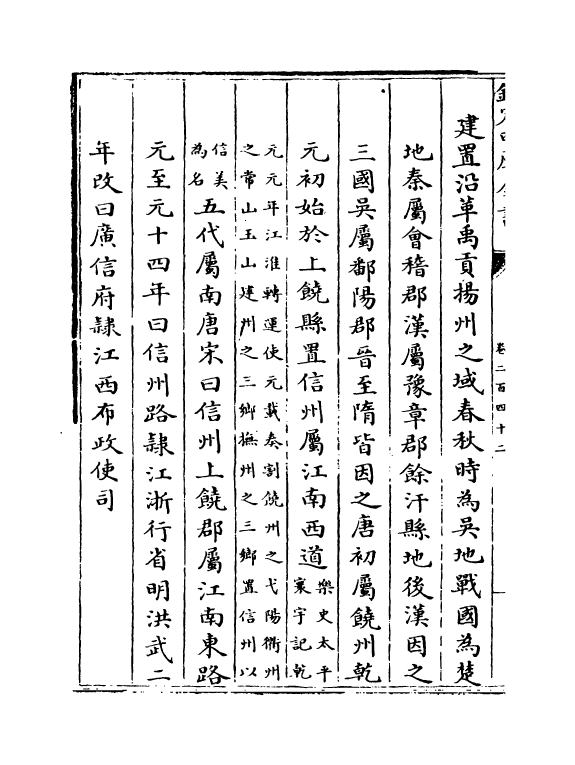 建置沿革禹貢揚州之域春秋時為吳地戰國為楚
地秦屬會稽郡漢屬豫章郡餘汗縣地後漢因之
三國吳屬鄱陽郡晉至隋皆因之唐初屬饒州乾
元初始於上饒縣置信州屬江南西道樂史太平寰宇記乾
元元年江淮轉運使元載奏割饒州之弋陽衢州
之常山玉山建州之三鄉撫州之三鄉置信州以
信美為名五代屬南唐宋曰信州上饒郡屬江南東路
元至元十四年曰信州路隷江浙行省明洪武二
年改曰廣信府隷江西布政使司
卷二百四十二